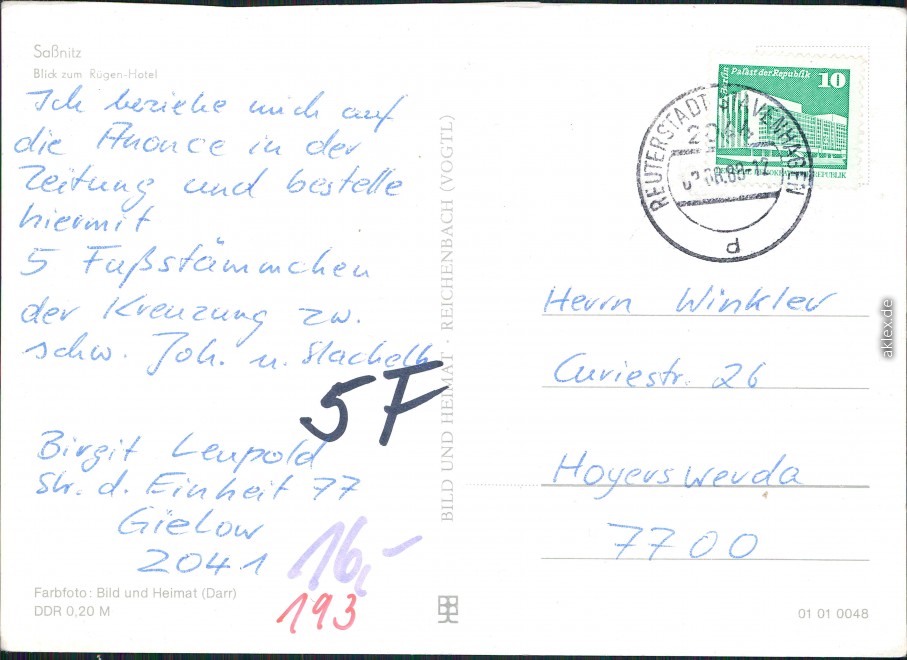 Saßnitz
Blick zum Rügen-Hotel
Ich beziehe mich auf
die Annonce in der
Zeitung und bestelle
hiermit
5 Fußstämmchen
der Kreuzung zw.
schw. Joh. u. Stachelb.
5F
Birgit Leupold
Str. d. Einheit 77
Gielow
2041
16,-
193
Farbfoto: Bild und Heimat (Darr)
DDR 0,20 M
BILD UND HEIMAT · REICHENBACH (VOGTL)
Palast der Republik 10
Berlin
REUTERSTADT STAVENHAGEN
2044
08.88-12
d
Herrn Winkler
Curiestr. 26
Hoyerswerda
7700
01 01 0048
aklex.de